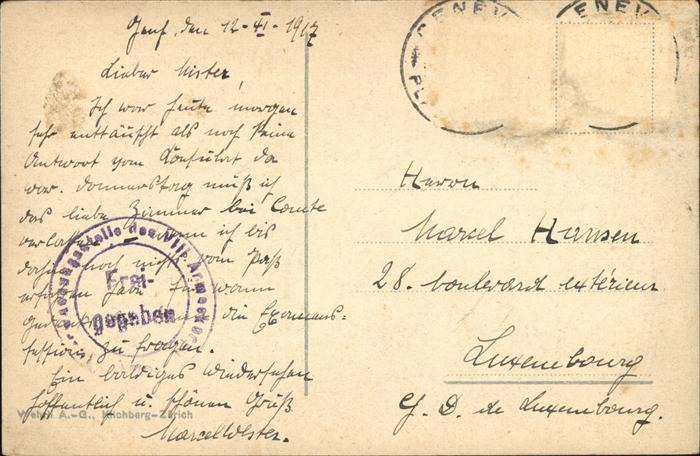 Genf, den 12-XI-1917
Lieber Mister,
Ich war heute morgen
sehr enttäuscht als noch keine
Antwort vom Konsulat da
war. Donnerstag muß ich
das liebe Zimmer bei Comte
verlassen. wenn ich bis
dahin noch nichts vom Paß
erfahren habe,
die Examens-
session zu fragen.
Ein baldiges Wiedersehen
hoffentlich u. schönen Gruß
Marcel Wester.
Frei-
gegeben
Überwachungsstelle des VIII. Armeekorps
Wehrli A.-G., Kilchberg-Zürich
GENEV
PL
ENEV
Herrn
Marcel Hansen
28. boulevard extérieur
Luxembourg
G. D. de Luxembourg.